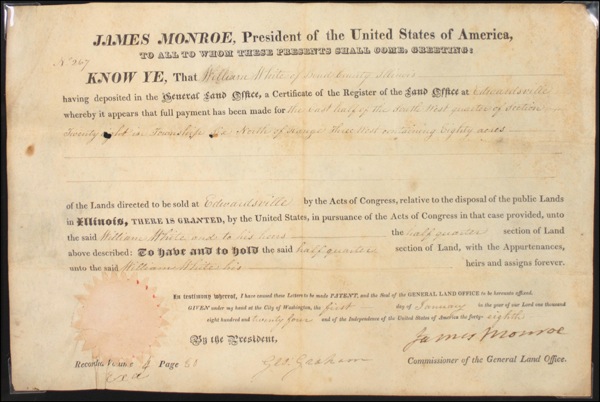 JAMES MONROE, President of the United States of America,
TO ALL TO WHOM THESE PRESENTS SHALL COME, GREETING:
No 367
KNOW YE, That William White of County Illinois
having deposited in the General Land Office, a Certificate of the Register of the Land Office at Edwardsville
whereby it appears that full payment has been made for the East half of the South West quarter of Section
Twenty eight in Township Six North of Range Three West containing Eighty acres
of the Lands directed to be sold at Edwardsville by the Acts of Congress, relative to the disposal of the public Lands
in Illinois, THERE IS GRANTED, by the United States, in pursuance of the Acts of Congress in that case provided, unto
the said William White and to his heirs the half quarter section of Land
above described: To have and to hold the said half quarter section of Land, with the Appurtenances,
unto the said William White his heirs and assigns forever.
In testimony whereof, I have caused these Letters to be made PATENT, and the Seal of the GENERAL LAND OFFICE to be hereunto affixed.
GIVEN under my hand at the City of Washington, the first day of January in the year of our Lord one thousand
eight hundred and twenty four and of the Independence of the United States of America the forty-eighth
By the President, James Monroe
Geo. Graham Commissioner of the General Land Office.
Recorded, Volume 4 Page